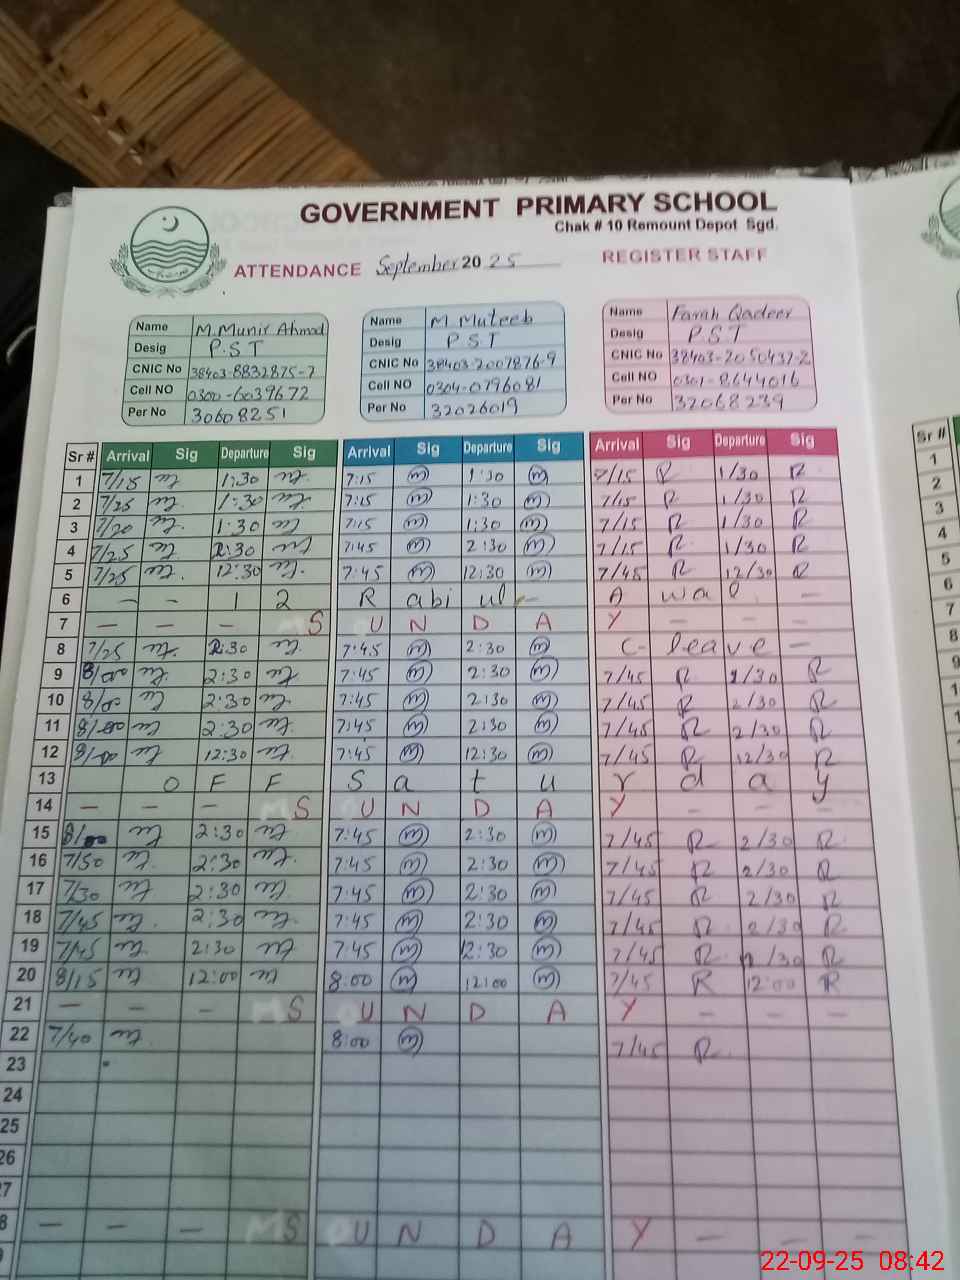 GOVERNMENT PRIMARY SCHOOL
Chak # 10 Remount Depot Sgd.
ATTENDANCE September 2025 REGISTER STAFF
Name M. Munir Ahmad
Desig P.S.T
CNIC No 38403-8832875-7
Cell NO 0300-6039672
Per No 30608251
Name M Muteeb
Desig P S T
CNIC No 38403-2007876-9
Cell NO 0304-0796081
Per No 32026019
Name Farah Qadeer
Desig P.S.T
CNIC No 38403-2050437-2
Cell NO 0301-8644016
Per No 32068239
Sr # Arrival Sig Departure Sig Arrival Sig Departure Sig Arrival Sig Departure Sig
1 7/15 1:30 7:15 m 1:30 m 7/15 R 1/30 R
2 7/25 1:30 7:15 m 1:30 m 7/15 R 1/30 R
3 7/20 1:30 7:15 m 1:30 m 7/15 R 1/30 R
4 7/25 2:30 7:45 m 2:30 m 7/15 R 1/30 R
5 7/25 12:30 7:45 m 12:30 m 7/45 R 12/30 R
6 - - 1 2 R abi ul - A wal -
7 - - - S U N D A Y - - -
8 7/25 2:30 7:45 m 2:30 m C- leave -
9 8/00 2:30 7:45 m 2:30 m 7/45 R 2/30 R
10 8/00 2:30 7:45 m 2:30 m 7/45 R 2/30 R
11 8/00 2:30 7:45 m 2:30 m 7/45 R 2/30 R
12 8/00 12:30 7:45 m 12:30 m 7/45 R 12/30 R
13 O F F S a t u r d a y
14 - - - S U N D A Y - - -
15 8/00 2:30 7:45 m 2:30 m 7/45 R 2/30 R
16 7/50 2:30 7:45 m 2:30 m 7/45 R 2/30 R
17 7/30 2:30 7:45 m 2:30 m 7/45 R 2/30 R
18 7/45 2:30 7:45 m 2:30 m 7/45 R 2/30 R
19 7/45 2:30 7:45 m 12:30 m 7/45 R /30 R
20 8/15 12:00 8:00 m 12:00 m 7/45 R 12:00 R
21 - - - S U N D A Y - - -
22 7/40 8:00 m 7/45 R
23
24
25
26
27
8 - - - S U N D A Y - -
Sr #
1
2
3
4
5
6
7
8
9
1
1
22-09-25 08:42